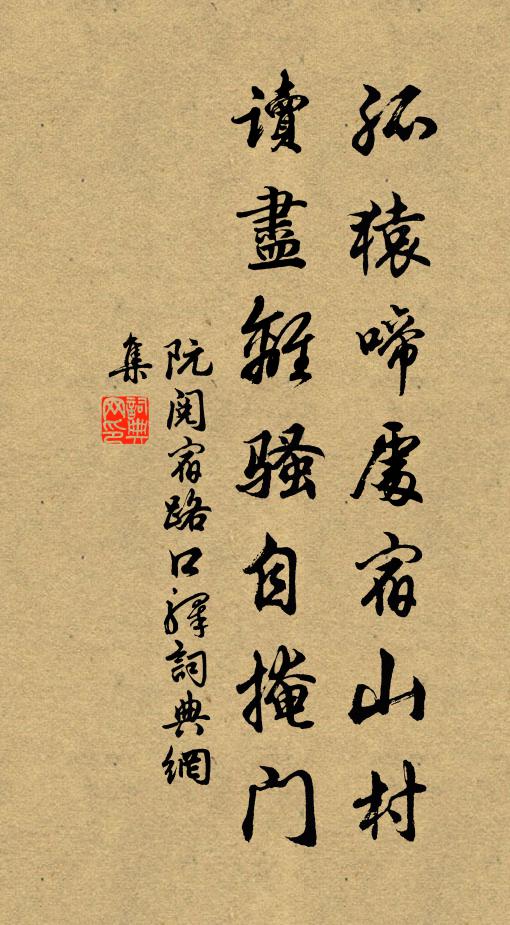 孤猿啼處宿山村
讀盡離騷自掩门
阮閱宿路口驛詞典網
集
詞典
网印